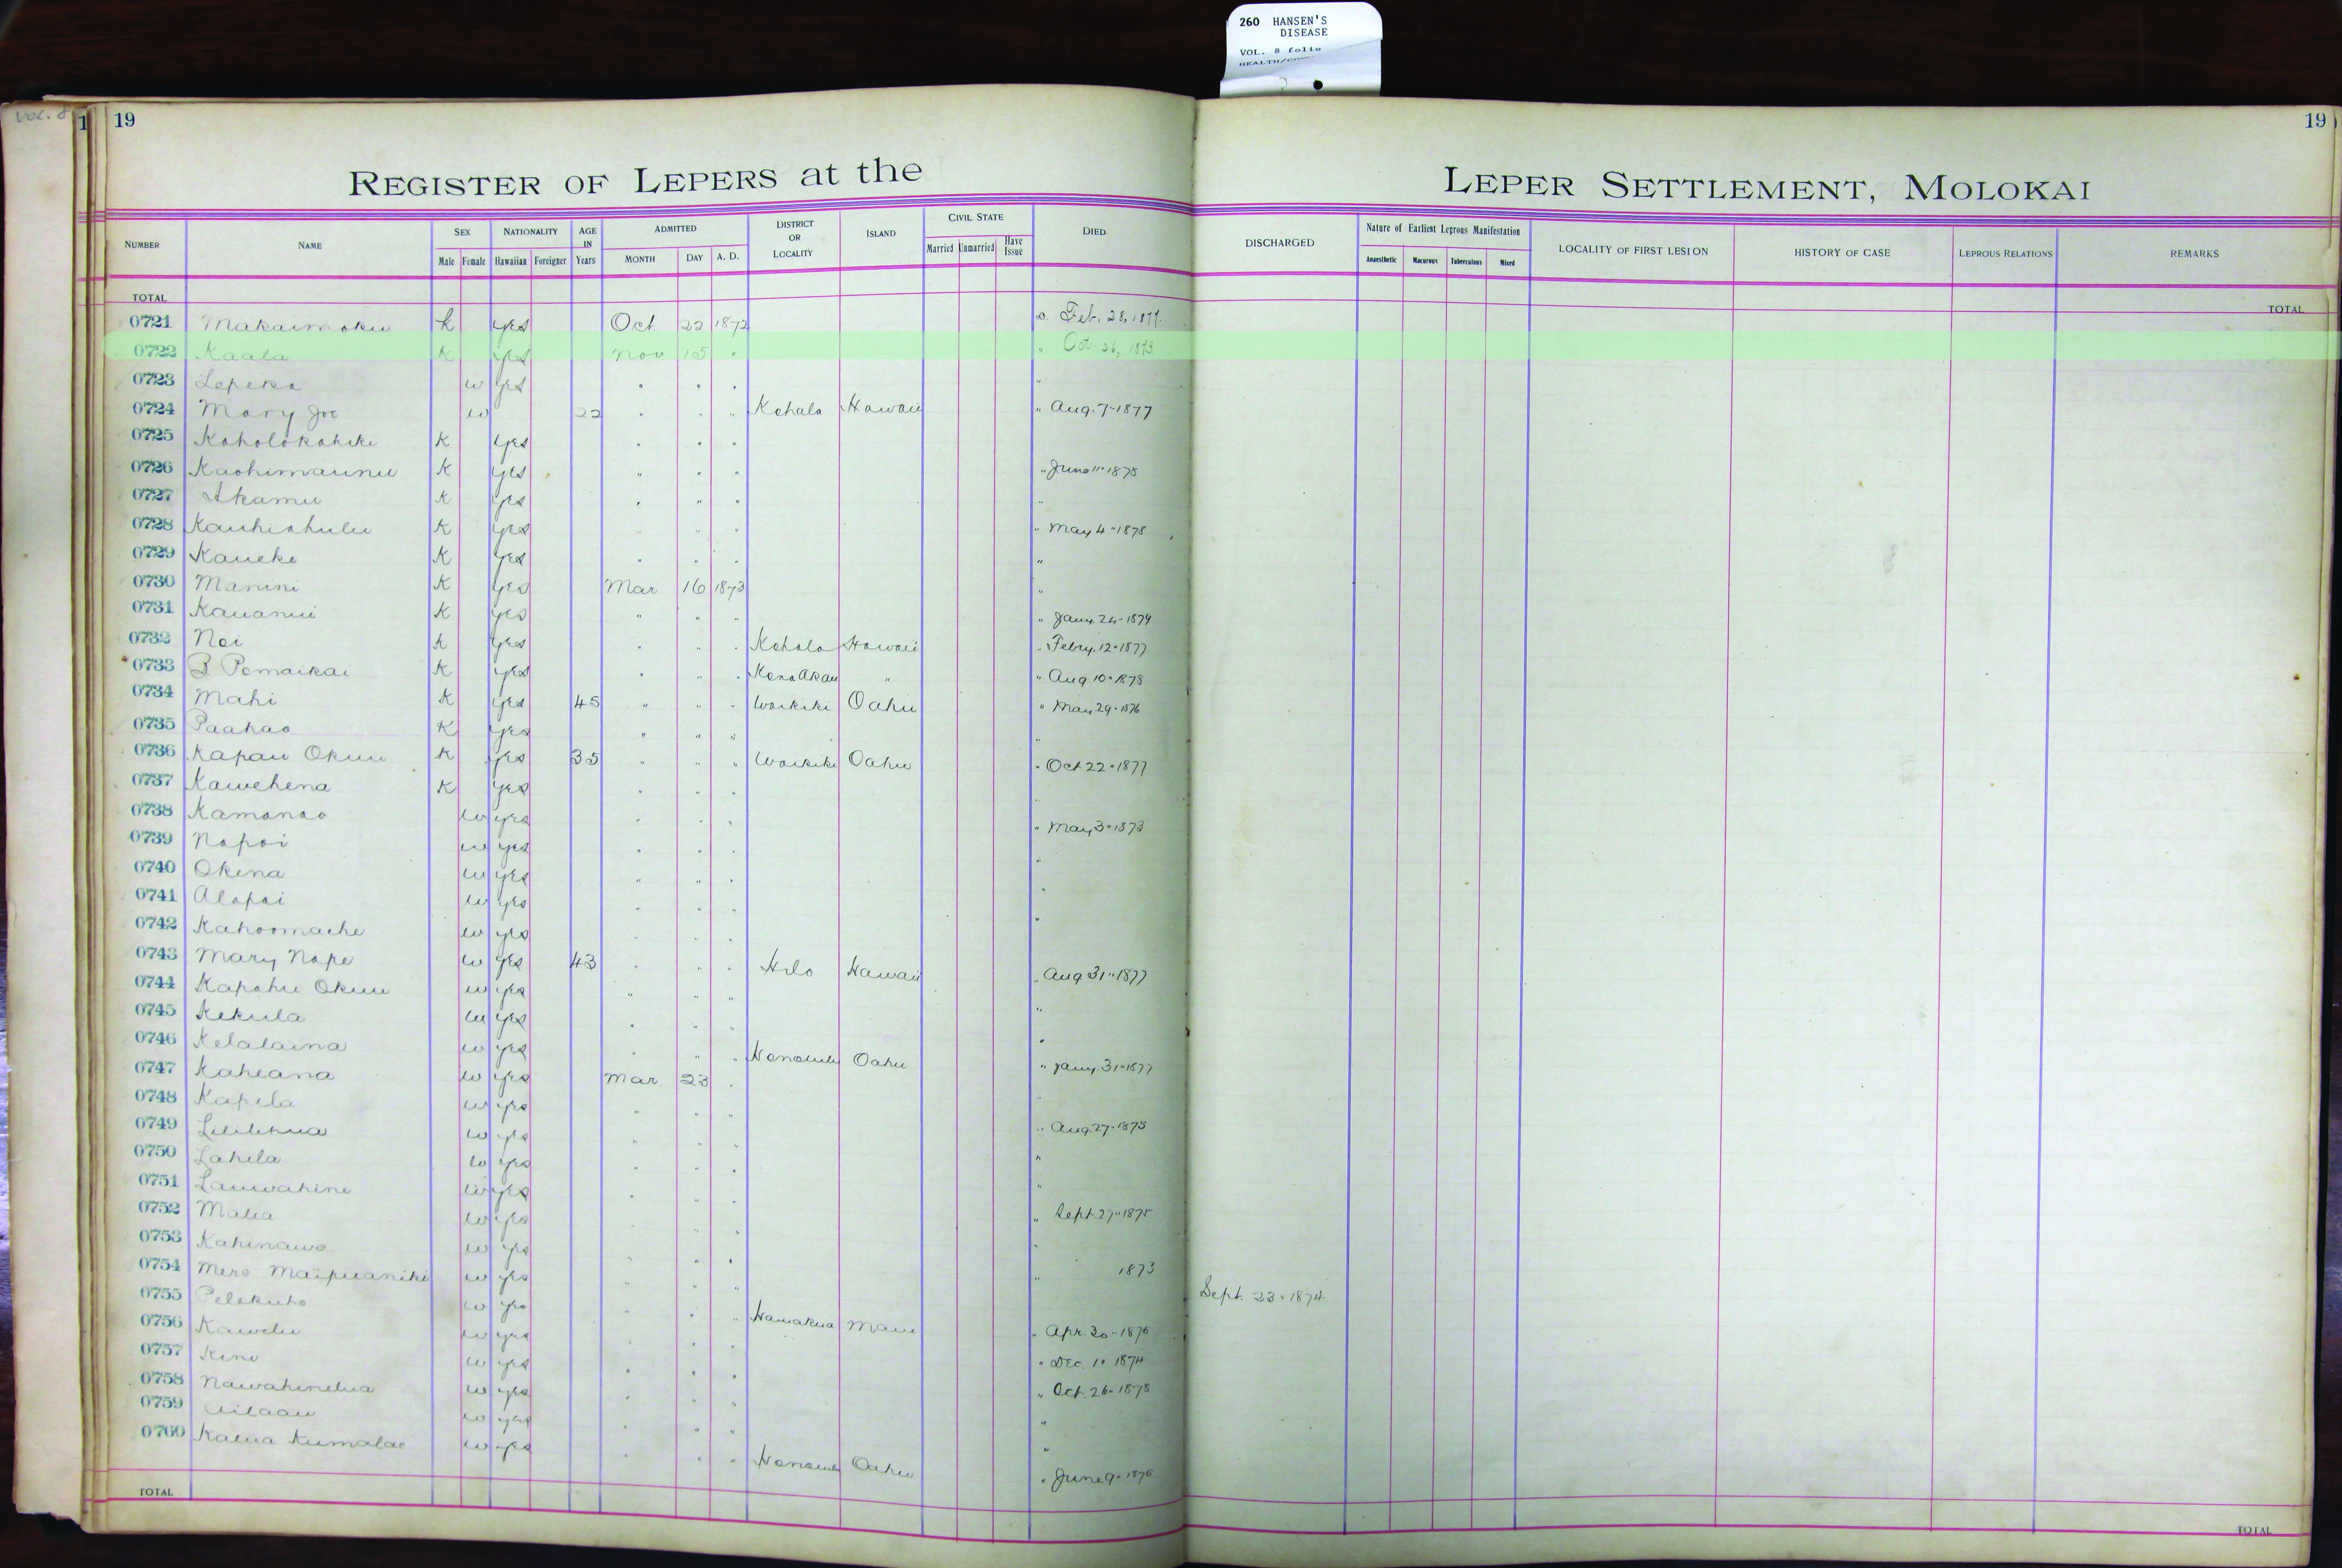 260 HANSEN'S
DISEASE
VOL. 8 folio
Vol. 8
1 19 19
REGISTER OF LEPERS at the LEPER SETTLEMENT, MOLOKAI
NUMBER NAME SEX Male Female NATIONALITY Hawaiian Foreigner AGE IN Years ADMITTED MONTH DAY A. D. DISTRICT OR LOCALITY ISLAND CIVIL STATE Married Unmarried Have Issue DIED DISCHARGED Nature of Earliest Leprous Manifestation Anaesthetic Macurous Tuberculous Mixed LOCALITY OF FIRST LESION HISTORY OF CASE LEPROUS RELATIONS REMARKS
TOTAL TOTAL
0721 Makaimoku k yes Oct 22 1872 Feb. 28, 1877.
0722 Kaala K yes Nov 15 " " Oct 26, 1873
0723 Lepeka w yes " " " "
0724 Mary Joe w 22 " " " Kohala Hawaii " Aug. 7" 1877
0725 Koholokahiki K yes " " "
0726 Kaohimaunu K yes " " " " June 11" 1878
0727 Akamu K yes " " " "
0728 Kauhiahulu K yes " " " " May 4" 1878
0729 Kaueke K yes " " " "
0730 Manini K yes Mar 16 1873 "
0731 Kauanui K yes " " " " Jany. 24" 1879
0732 Noi K yes " " " Kohala Hawaii " Febry. 12" 1877
0733 B Pomaikai K yes " " " Kona Akau " " Aug 10" 1878
0734 Mahi K yes 45 " " " Waikiki Oahu " May 29" 1876
0735 Paahao K yes " " " "
0736 Kapau Okuu K yes 35 " " " Waikiki Oahu " Oct 22" 1877
0737 Kawehena K yes " " " "
0738 Kamanao w yes " " " " May 3" 1873
0739 Napoi w yes " " " "
0740 Okina w yes " " " "
0741 Alapai w yes " " " "
0742 Kahoomache w yes " " "
0743 Mary Nape w yes 43 " " " Hilo Hawaii " Aug 31" 1877
0744 Kapahu Okuu w yes " " " "
0745 Kekula w yes " " " "
0746 Kelalaina w yes " " " Honolulu Oahu " Jany. 31" 1877
0747 Kaheana w yes Mar. 23 " "
0748 Kapela w yes " " " " Aug. 27" 1875
0749 Lililehua w yes " " " "
0750 Lahela w yes " " " "
0751 Lauwahine w yes " " " " Sept. 27" 1875
0752 Malia w yes " " " "
0753 Kahinawe w yes " " " " 1873
0754 Mere Maipuaniki w yes " " " Sept. 23" 1874
0755 Pelekuho w yes " " " Hamakua Maui " Apr. 30" 1876
0756 Kawelu w yes " " " " Dec. 1" 1874
0757 Kini w yes " " " " Oct. 26" 1878
0758 Nawahinelua w yes " " " "
0759 Ailaau w yes " " " "
0760 Kalua Kumalae w yes " " " Honolulu Oahu " June 9" 1876
TOTAL TOTAL